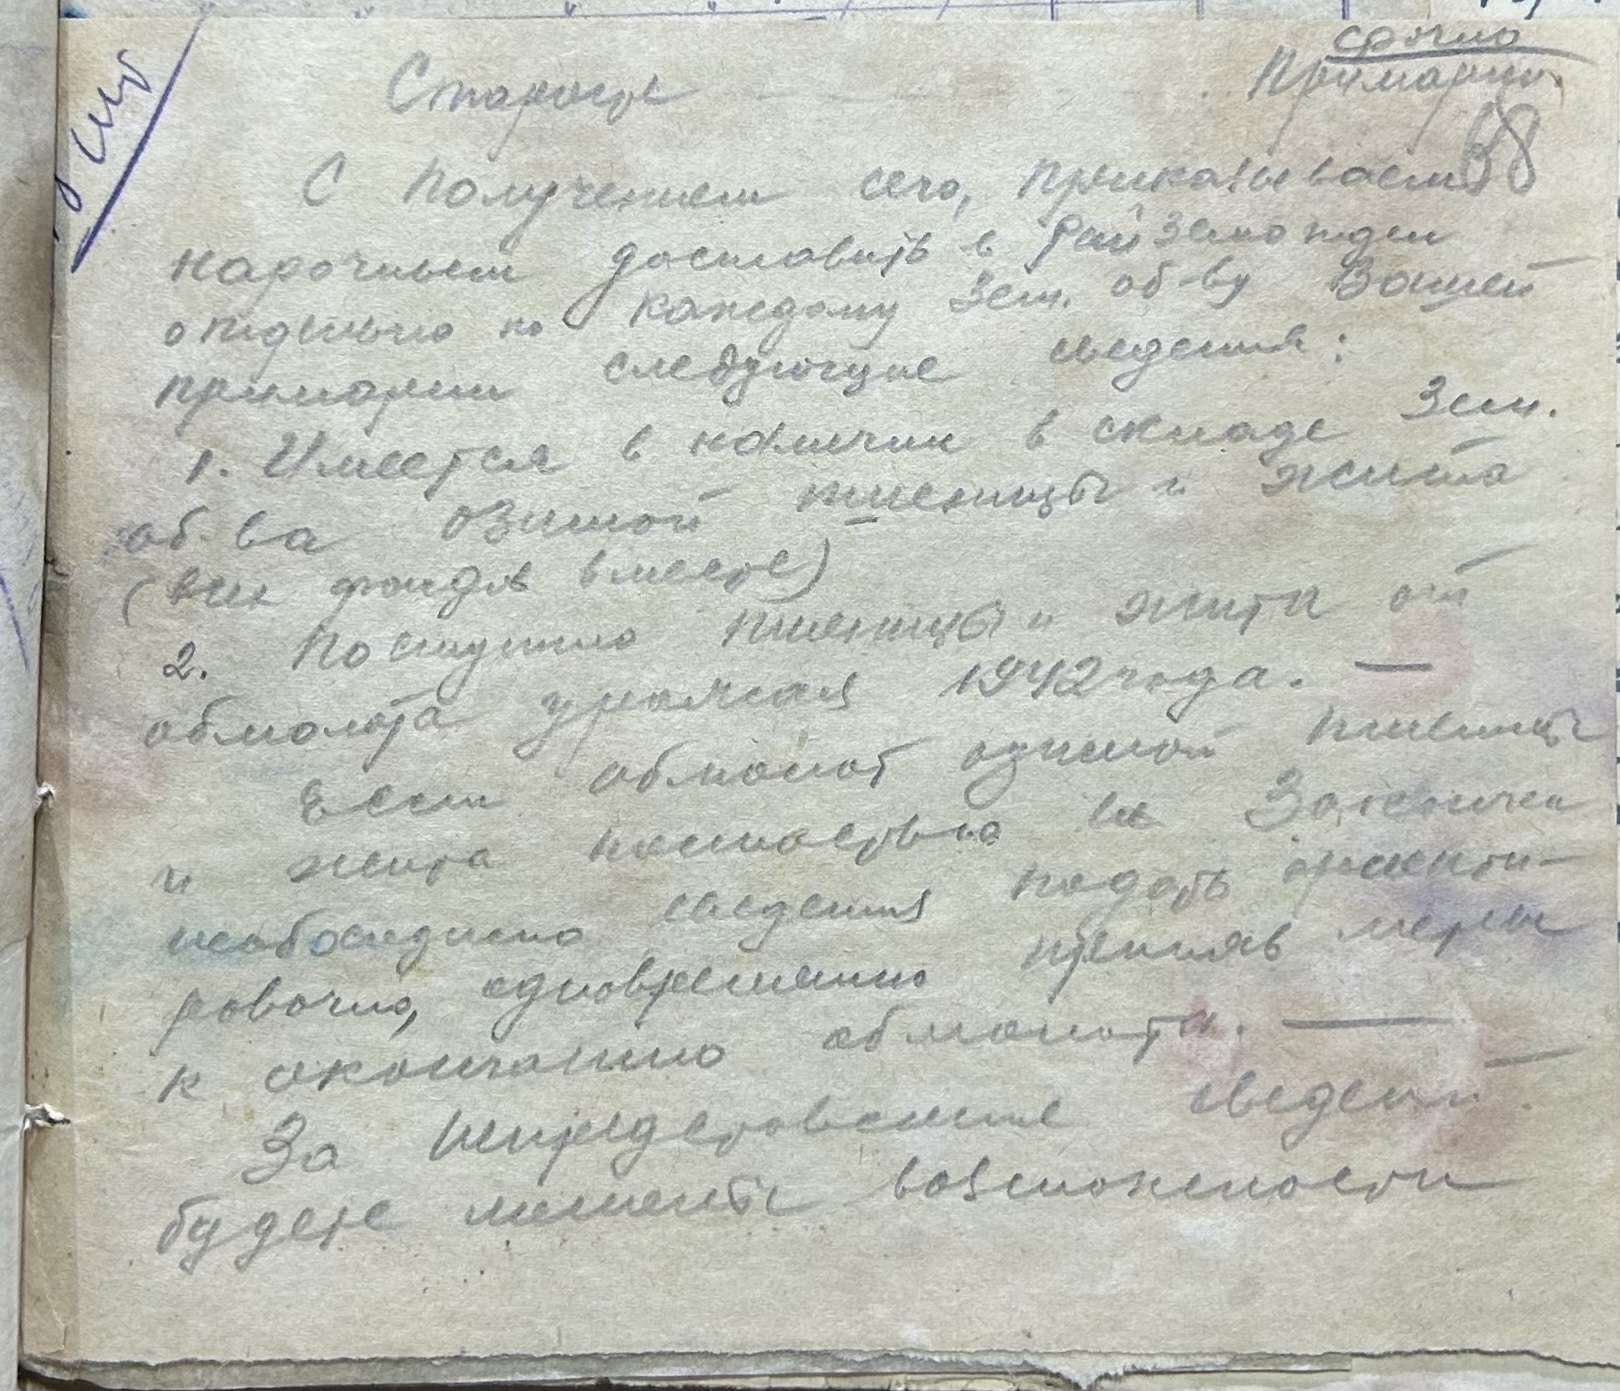 срочно
Старосте Примарии.
68
С получением сего, приказываем
нарочным доставить в Райземотдел
отдельно по каждому Зем. об-ву Вашей
примарии следующие сведения:
1. Имеется в наличии в складе Зем.
об-ва озимой пшеницы и жита
(всех фондов вместе)
2. Поступило пшеницы и жита от
обмолота урожая 1942 года. —
Если обмолот озимой пшеницы
и жита полностью не закончен
необходимо сведения подать ориенти-
ровочно, одновременно приняв меры
к окончанию обмолота. —
За непредставление сведений
будете лишены возможности